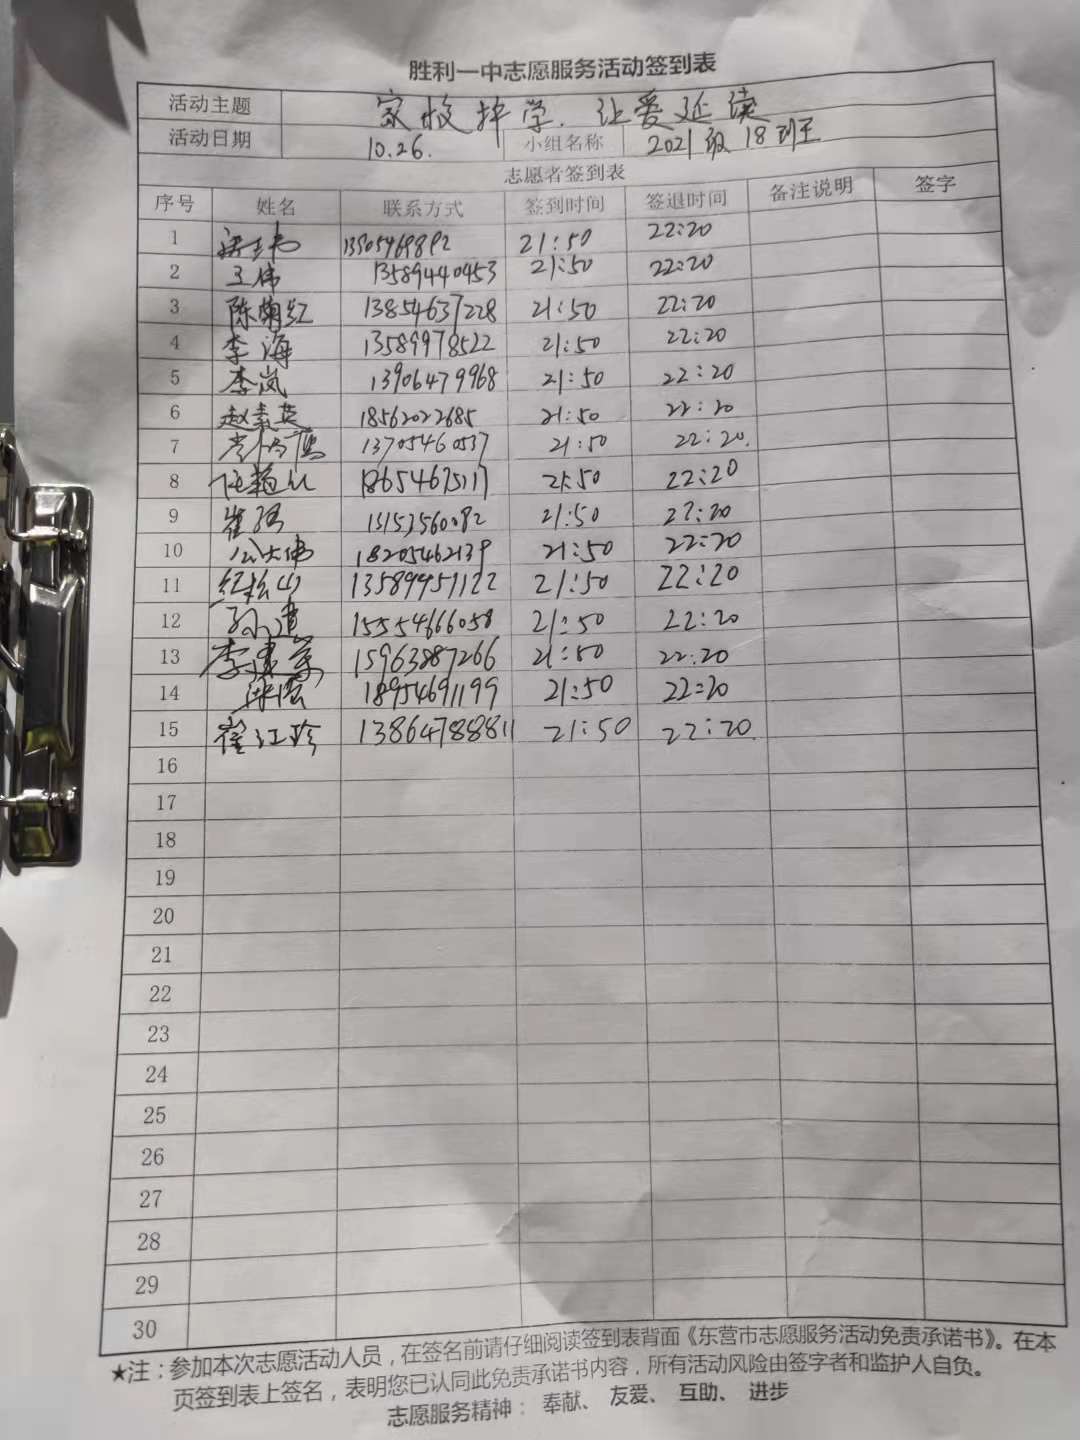 胜利一中志愿服务活动签到表
活动主题 家校护学.让爱延续
活动日期 10.26. 小组名称 2021级18班
志愿者签到表
序号 姓名 联系方式 签到时间 签退时间 备注说明 签字
1 21:50 22:20
2 王伟 13589440453 21:50 22:20
3 陈菊红 13854637228 21:50 22:20
4 李海 13589978522 21:50 22:20
5 李岚 13906479968 21:50 22:20
6 赵素英 18562022685 21:50 22:20
7 13705460537 21:50 22:20.
8 18654675117 21:50 22:20
9 崔强 21:50 22:20
10 公大伟 18205462139 21:50 22:20
11 纪松山 13589951122 21:50 22:20
12 孙道 15554666058 21:50 22:20
13 15963887266 21:50 22:20
14 18954691199 21:50 22:20
15 崔江珍 13864788811 21:50 22:20.
16
17
18
19
20
21
22
23
24
25
26
27
28
29
30
★注：参加本次志愿活动人员，在签名前请仔细阅读签到表背面《东营市志愿服务活动免责承诺书》。在本
页签到表上签名，表明您已认同此免责承诺书内容，所有活动风险由签字者和监护人自负。
志愿服务精神： 奉献、 友爱、 互助、 进步